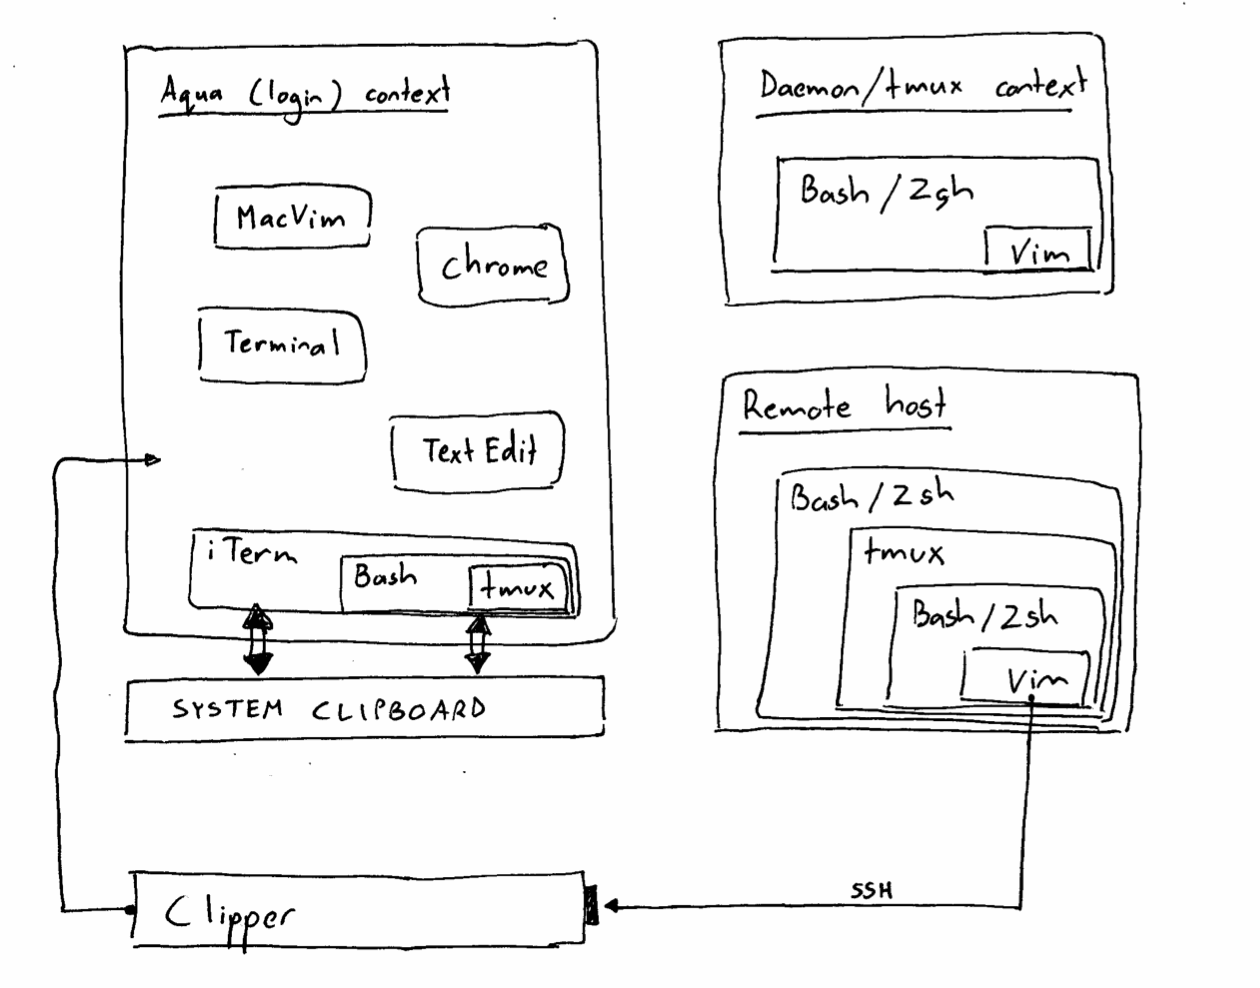 Aqua (login) context
MacVim
Chrome
Terminal
Text Edit
iTerm
Bash
tmux
SYSTEM CLIPBOARD
Clipper
Daemon/tmux context
Bash / Zsh
Vim
Remote host
Bash / Zsh
tmux
Bash / Zsh
Vim
SSH